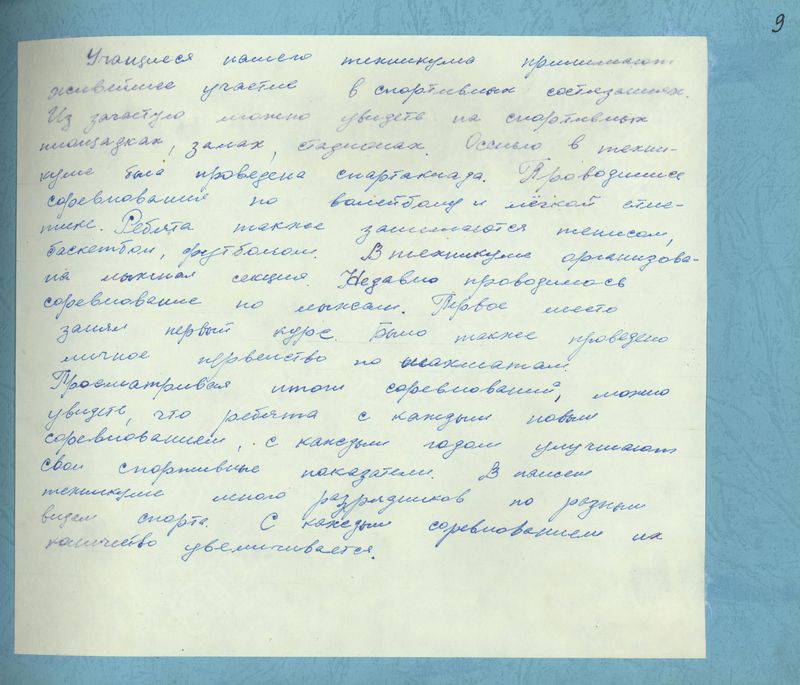 9
Учащиеся нашего техникума принимают
живейшее участие в спортивных состязаниях.
Их зачастую можно увидеть на спортивных
площадках, залах, стадионах. Осенью в техни-
куме была проведена спартакиада. Проводились
соревнования по волейболу и лёгкой атле-
тике. Ребята также занимаются теннисом,
баскетбол, футболом. В техникуме организова-
на лыжная секция. Недавно проводилось
соревнование по лыжам. Первое место
занял первый курс. Было также проведено
личное первенство по шахматам.
Просматривая итоги соревнований, можно
увидеть, что ребята с каждым новым
соревнованием, с каждым годом улучшают
свои спортивные показатели. В нашем
техникуме много разрядников по разным
видам спорта. С каждым соревнованием их
количество увеличивается.